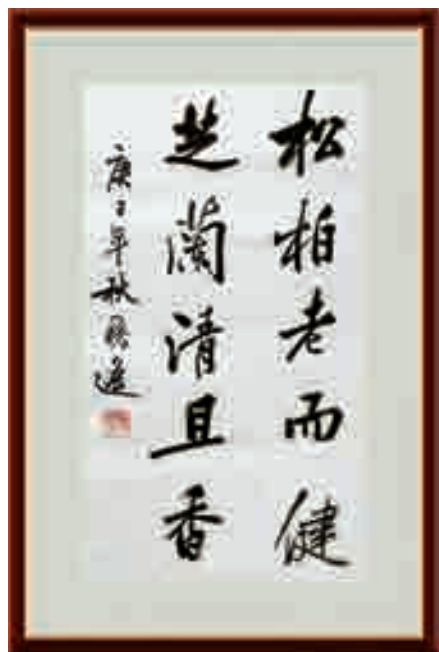 松柏老而健
芝蘭清且香
庚子年秋